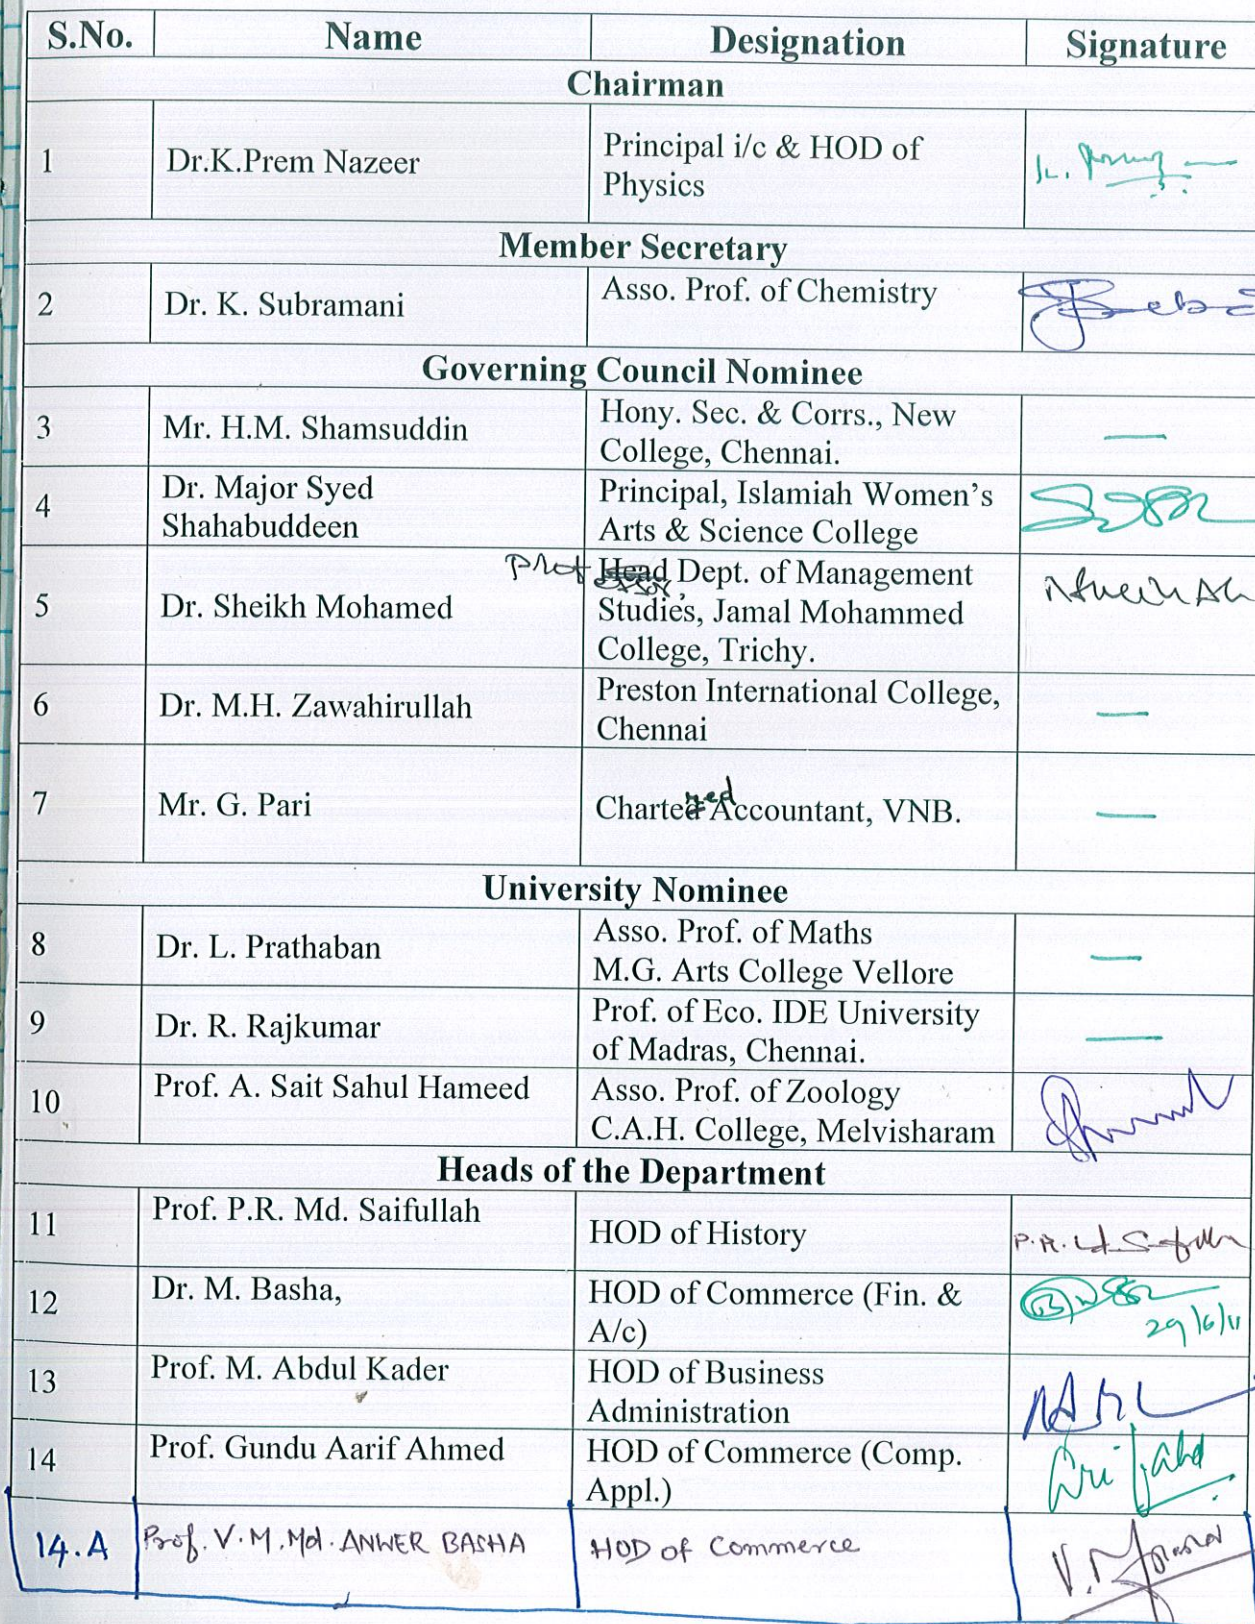 S.No. Name Designation Signature
Chairman
1 Dr.K.Prem Nazeer Principal i/c & HOD of
Physics
Member Secretary
2 Dr. K. Subramani Asso. Prof. of Chemistry
Governing Council Nominee
3 Mr. H.M. Shamsuddin Hony. Sec. & Corrs., New
College, Chennai. —
4 Dr. Major Syed
Shahabuddeen Principal, Islamiah Women's
Arts & Science College
5 Dr. Sheikh Mohamed Prof Head Dept. of Management
Studies, Jamal Mohammed
College, Trichy.
6 Dr. M.H. Zawahirullah Preston International College,
Chennai —
7 Mr. G. Pari Chartered Accountant, VNB. —
University Nominee
8 Dr. L. Prathaban Asso. Prof. of Maths
M.G. Arts College Vellore —
9 Dr. R. Rajkumar Prof. of Eco. IDE University
of Madras, Chennai. —
10 Prof. A. Sait Sahul Hameed Asso. Prof. of Zoology
C.A.H. College, Melvisharam
Heads of the Department
11 Prof. P.R. Md. Saifullah HOD of History
12 Dr. M. Basha, HOD of Commerce (Fin. &
A/c) 29/6/11
13 Prof. M. Abdul Kader HOD of Business
Administration
14 Prof. Gundu Aarif Ahmed HOD of Commerce (Comp.
Appl.)
14.A Prof. V.M.Md. ANWER BASHA HOD of Commerce